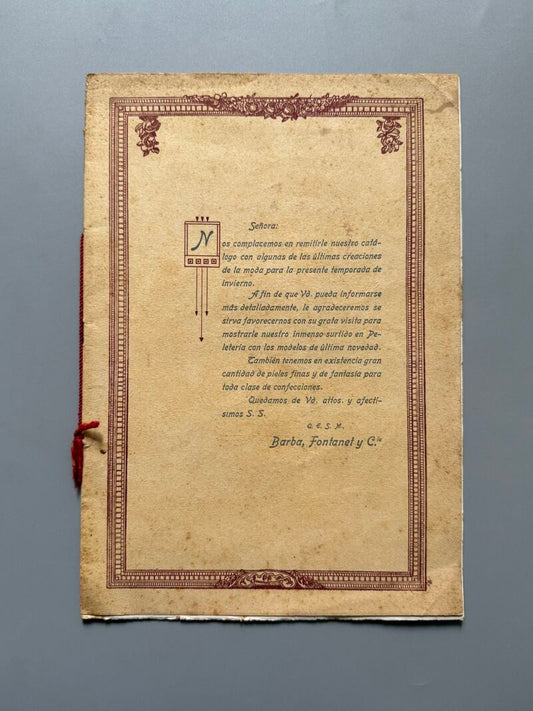 Señora:
Nos complacemos en remitirle nuestro catá-
logo con algunas de las últimas creaciones
de la moda para la presente temporada de
invierno.
A fin de que Vd. pueda informarse
más detalladamente, le agradeceremos se
sirva favorecernos con su grata visita para
mostrarle nuestro inmenso surtido en Pe-
letería con los modelos de última novedad.
También tenemos en existencia gran
cantidad de pieles finas y de fantasía para
toda clase de confecciones.
Quedamos de Vd. attos. y afectí-
simos S. S.
Q. E. S. M.,
Barba, Fontanet y C.ia